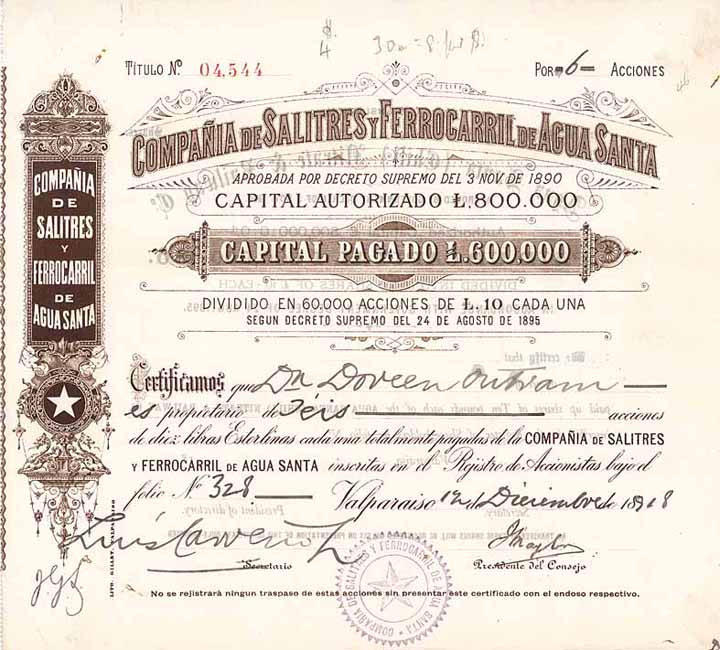 TÍTULO Nº 04,544
POR 6 ACCIONES
COMPAÑIA DE SALITRES Y FERROCARRIL DE AGUA SANTA
APROBADA POR DECRETO SUPREMO DEL 3 NOV. DE 1890
CAPITAL AUTORIZADO £.800.000
CAPITAL PAGADO £.600.000
DIVIDIDO EN 60.000 ACCIONES DE £.10 CADA UNA
SEGUN DECRETO SUPREMO DEL 24 DE AGOSTO DE 1895
COMPAÑIA
DE
SALITRES
Y
FERROCARRIL
DE
AGUA SANTA
Certificamos que Da Doreen Outram
es propietario de séis acciones
de diez libras Esterlinas cada una totalmente pagadas de la COMPAÑIA DE SALITRES
Y FERROCARRIL DE AGUA SANTA inscritas en el Registro de Accionistas bajo el
folio Nº 328 Valparaiso 12 de Diciembre de 1918
Luis Carreño
Secretario
Presidente del Consejo
COMPAÑIA DE SALITRES Y FERROCARRIL DE AGUA SANTA
No se rejistrará ningun traspaso de estas acciones sin presentar este certificado con el endoso respectivo.